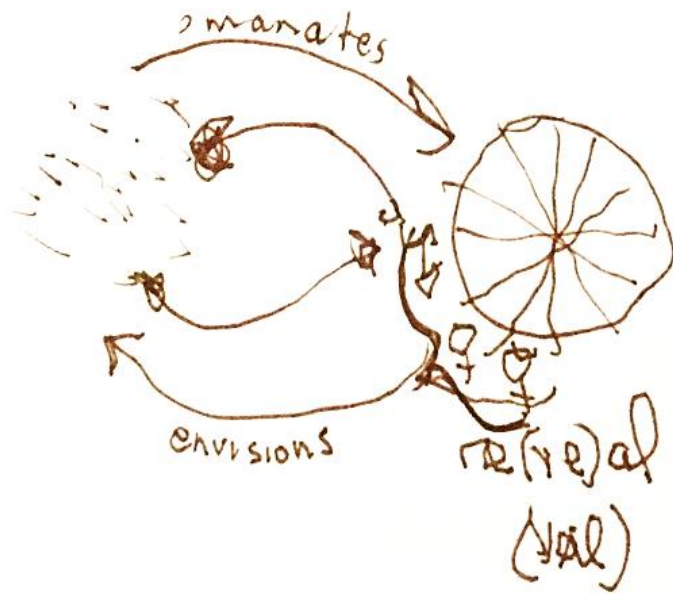 emanates
envisions
re(ve)al
(veil)